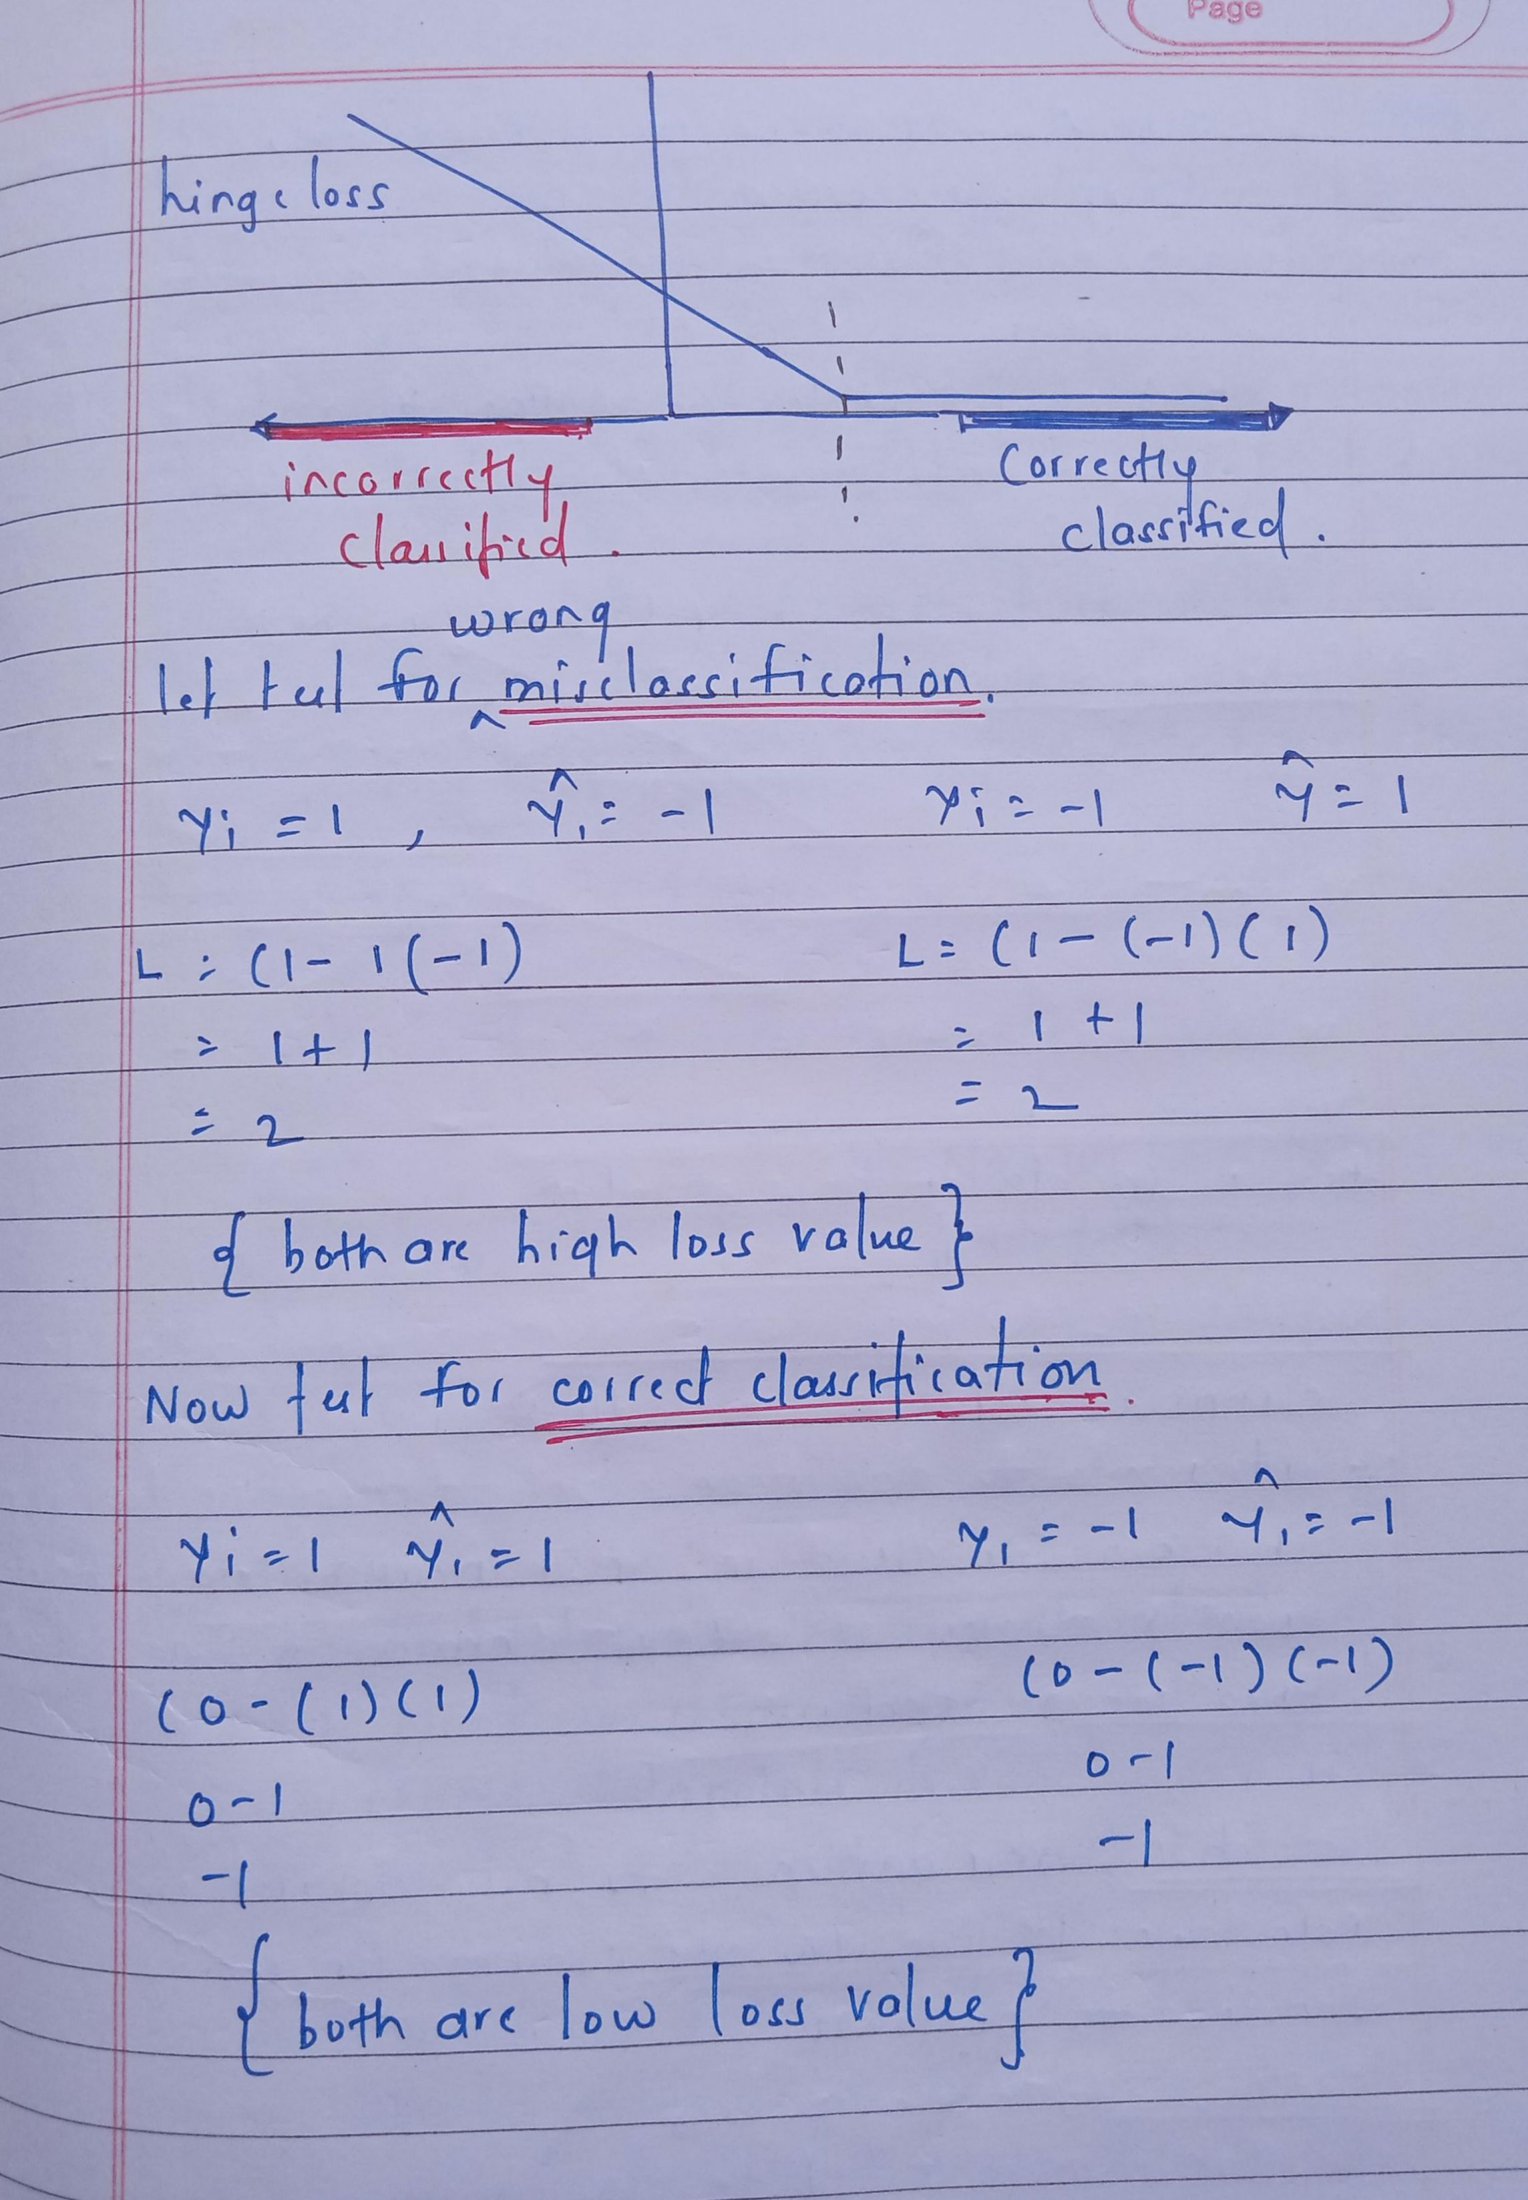 Page
hinge loss
incorrectly
classified.
Correctly
classified.
wrong
let test for ^ misclassification.
yi = 1 , ŷi = -1 yi = -1 ŷ = 1
L = (1 - 1(-1) L = (1 - (-1)(1)
= 1+1 = 1 + 1
= 2 = 2
{ both are high loss value }
Now test for correct classification.
yi = 1 ŷi = 1 yi = -1 ŷi = -1
(0 - (1)(1) (0 - (-1)(-1)
0-1 0-1
-1 -1
{ both are low loss value }